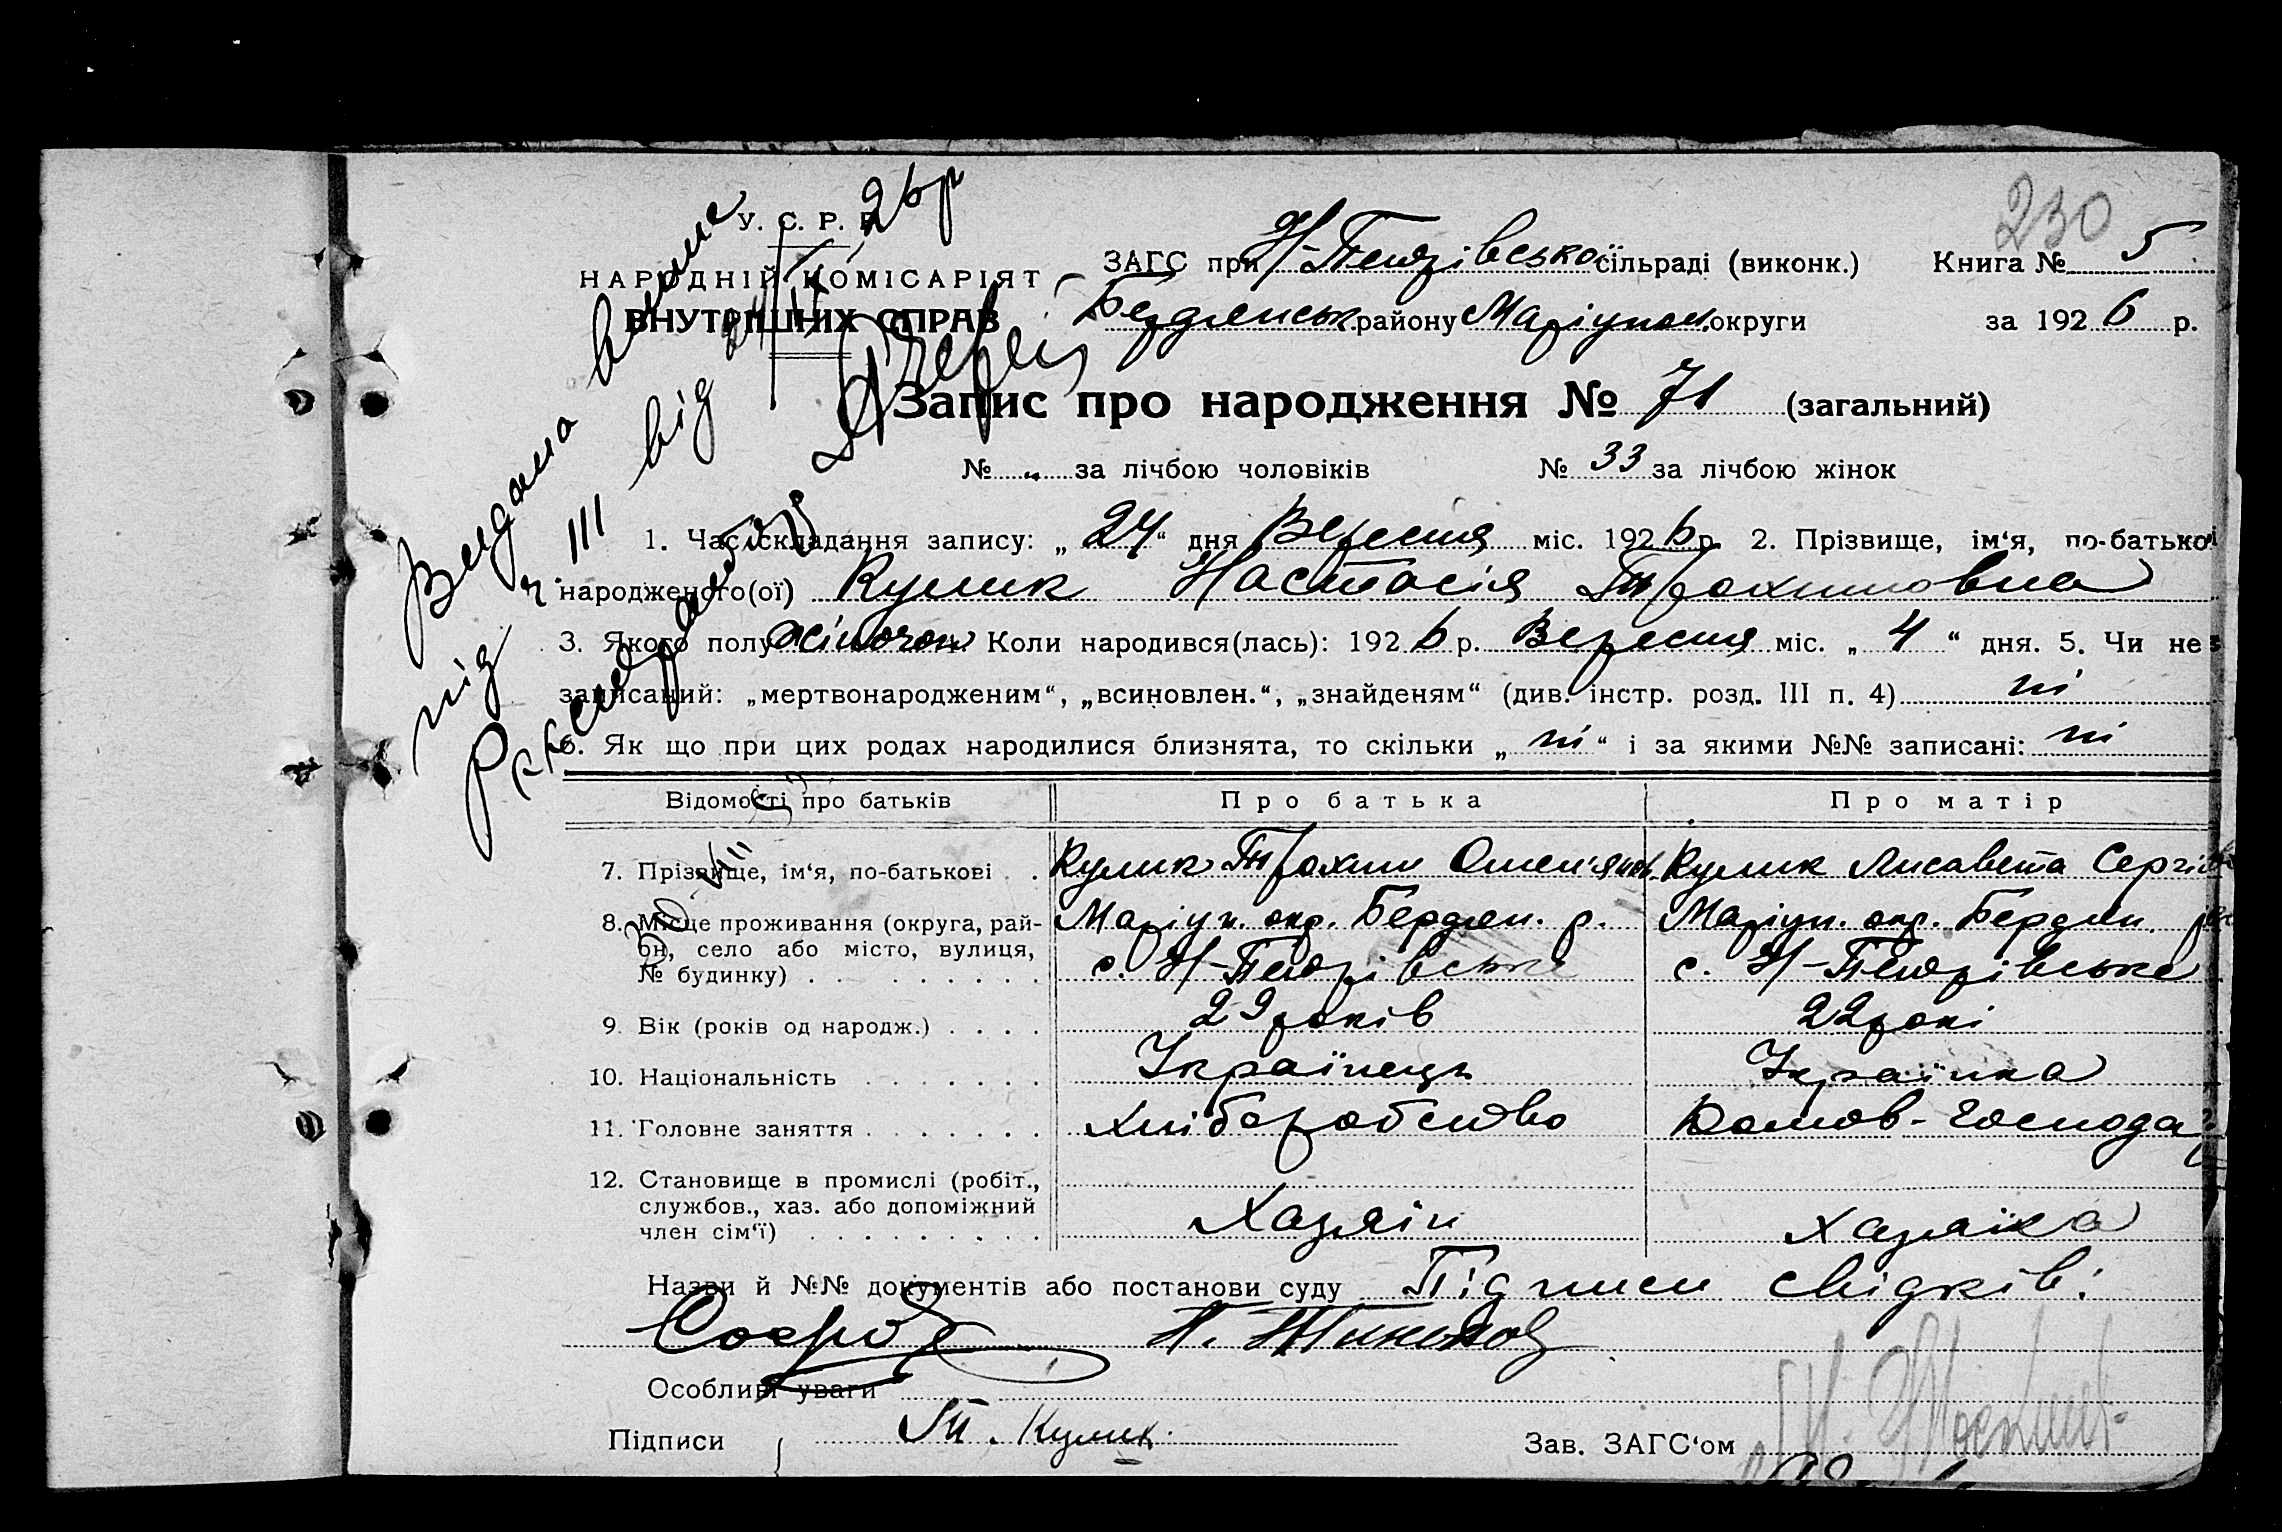 230
У. С. Р. Р.
НАРОДНІЙ КОМІСАРІЯТ
ВНУТРІШНІХ СПРАВ
ЗАГС при Н-Петрівської сільраді (виконк.) Книга № 5
Бердянськ. району Маріупол. округи за 1926 р.
Видана виписка
під ч. III від 24/IX 26 р
Запис про народження № 71 (загальний)
№ „ за лічбою чоловіків № 33 за лічбою жінок
1. Час складання запису: „24“ дня Вересня міс. 1926 р. 2. Прізвище, ім‘я, по-батькові
народженого(ої) Кулик Настасія Трохимовна
3. Якого полу жіночого 4. Коли народився(лась): 1926 р. Вересня міс. „4“ дня. 5. Чи не з
записаний: „мертвонародженим“, „всиновлен.“, „знайденям“ (див. інстр. розд. III п. 4) ні
6. Як що при цих родах народилися близнята, то скільки „ні“ і за якими №№ записані: ні
Відомості про батьків Про батька Про матір
7. Прізвище, ім‘я, по-батькові . . Кулик Трохим Омел'янов. Кулик Лисавета Сергіїв
8. Місце проживання (округа, рай- Маріуп. окр. Бердян. р. Маріуп. окр. Бердян. рай
он, село або місто, вулиця, с. Н-Петрівське с. Н-Петрівське
№ будинку) . . . . . . . .
9. Вік (років од народж.) . . . . 29 років 22 рокі
10. Національність . . . . . . . Українець Українка
11. Головне заняття . . . . . . . Хліборобство Домов-господар
12. Становище в промислі (робіт.,
службов., хаз. або допоміжний Хазяїн Хазяїка
член сім‘ї) . . . . . . . . .
Назви й №№ документів або постанови суду Підписи свідків:
Особливі уваги
Підписи { Т. Кулик. Зав. ЗАГС‘ом